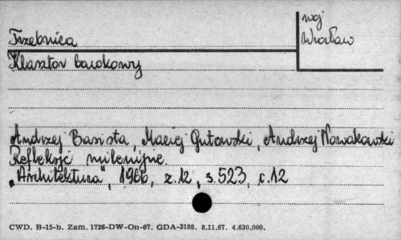 Trzebnica
woj
Wrocław
Klasztor barokowy
Andrzej Basista, Maciej Gutowski, Andrzej Nowakowski
Refleksje milenijne.
„Architektura", 1966, z.12, s.523, r.12
CWD. B-15-b. Zam. 1726-DW-On-67. GDA-3198. 8.11.67. 4.630.000.